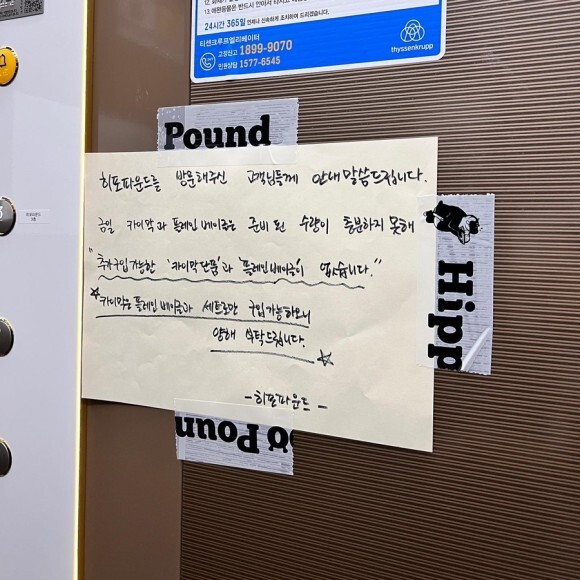 13. 애완동물은 반드시 안아서
24시간 365일 언제나 신속하게 조치하여 드리겠습니다.
티센크루프엘리베이터
고장신고 1899-9070
민원상담 1577-6545
thyssenkrupp
Pound
히포파운드를 방문해주신 고객님들께 안내말씀드립니다.
금일 카이막과 플레인 베이글은 준비 된 수량이 충분하지 못해
"추가구입 가능한 '카이막 단품'과 '플레인 베이글'이 없습니다."
☆카이막은 플레인 베이글과 세트로만 구입 가능하오니
양해 부탁드립니다. ☆
-히포파운드-
Hipp
Poun